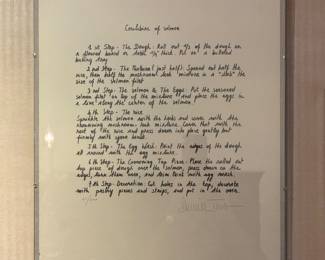 Coulibiac of Salmon
1 st Step - The Dough: Roll out 2/3 of the dough on
a floured board in depth 1/8" thick. Put on a buttered
baking tray
2 nd Step - The Mixture (just half): Spread out half the
rice, then half the mushroom-leek mixture in a "slab" the
size of the salmon filet
3 rd Step - The Salmon & The Eggs: Put the seasoned
salmon filet on top of the mixture and place the eggs in
a line along the center of the salmon
4 th Step - The rice
Sprinkle the salmon with the herbs and cover with the
remaining mushroom-leek mixture. Cover that with the
rest of the rice and press down into place gently but
firmly with your hands.
5 th Step - The Egg Wash: Paint the edges of the dough
all around with the egg mixture.
6 th Step - The Covering Top Piece: Place the rolled out
top piece of dough over the salmon, press down on the
edges, turn them over, and trim. Paint with egg wash.
7 th Step - Decoration: Cut holes in the top, decorate
with pastry pieces and strips, and put in the oven.